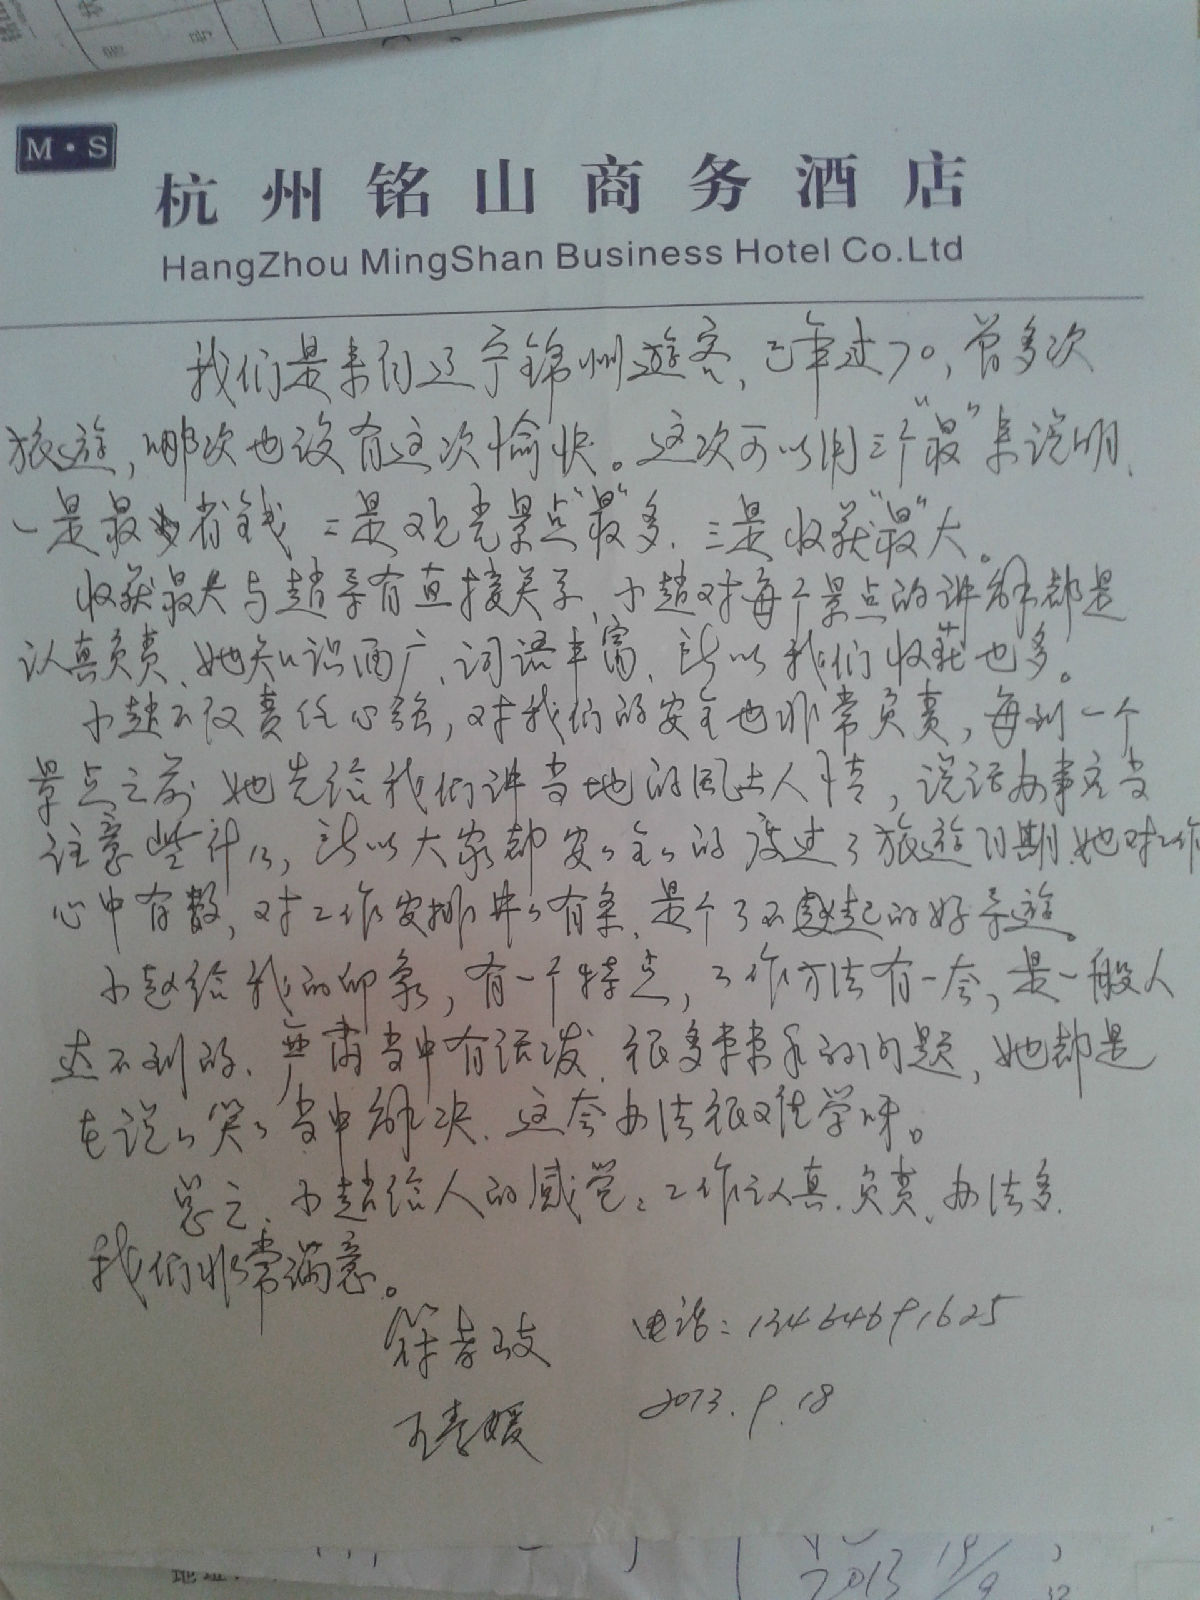 M·S
杭州铭山商务酒店
HangZhou MingShan Business Hotel Co.Ltd
我们是来自辽宁锦州游客,已年过70,曾多次
旅游,哪次也没有这次愉快。这次可以用三个"最"来说明、
一是最省钱 二是观光景点"最"多、三是收获"最"大。
收获最大与赵导有直接关系、小赵对每个景点的讲解都是
认真负责、她知识面广、词语丰富、所以我们收获也多。
小赵不仅责任心强,对我们的安全也非常负责,每到一个
景点之前 她先给我们讲当地的风土人情,说话办事应当
注意些什么,所以大家都安安全全的度过了旅游日期.她对工作
心中有数,对工作安排井井有条、是个了不起的好导游。
小赵给我的印象,有一个特点,工作方法有一套,是一般人
达不到的、严肃当中有活泼、很多棘手的问题,她都是
在说说笑笑当中解决、这套办法很难学呀。
总之、小赵给人的感觉:工作认真、负责、办法多、
我们非常满意。
电话:13464691625
2013.9.18
2013 19/9